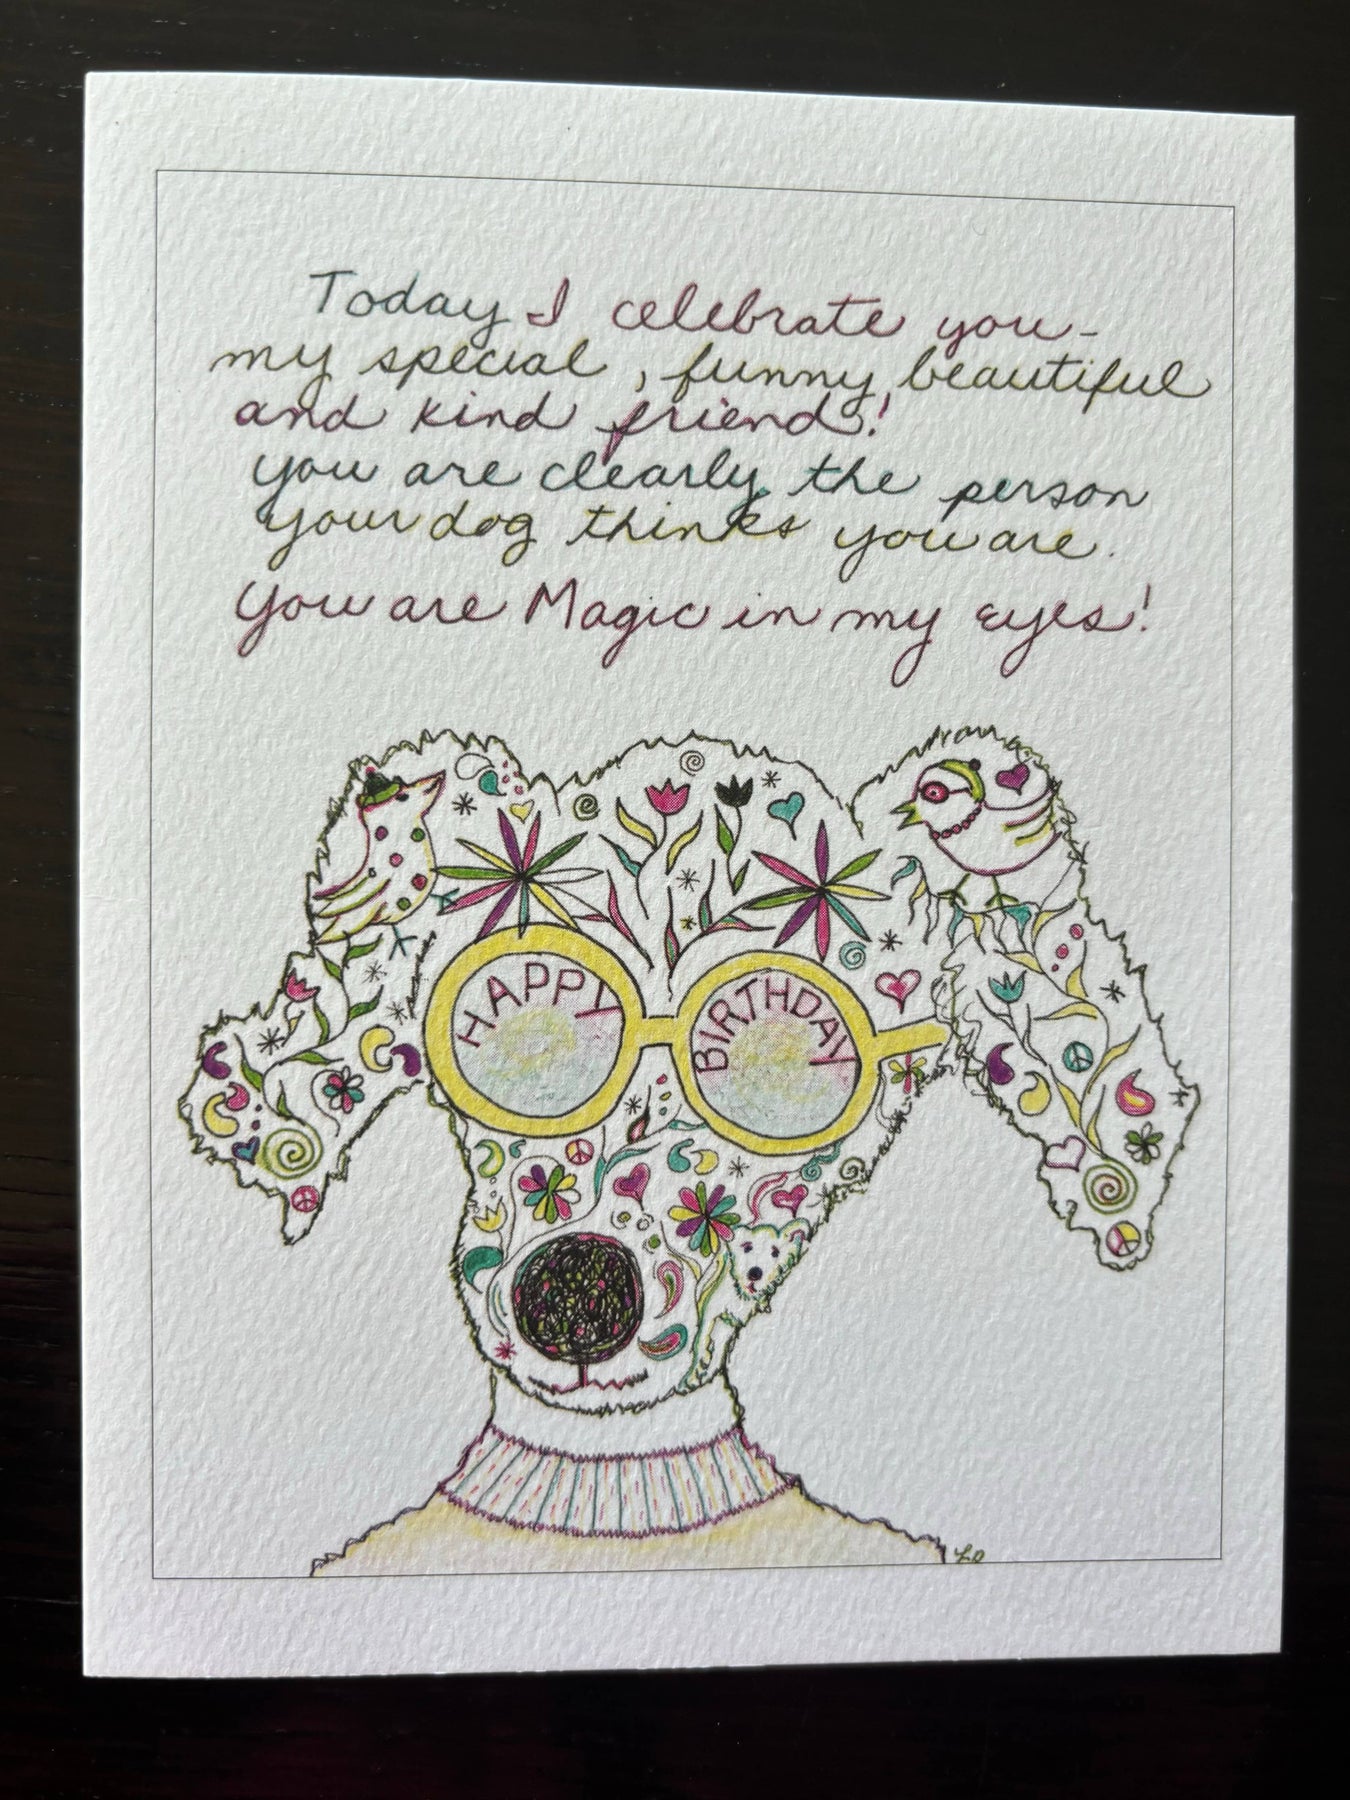 Today I celebrate you-
my special, funny, beautiful
and kind friend!
you are clearly the person
your dog thinks you are.
you are Magic in my eyes!
HAPPY
BIRTHDAY